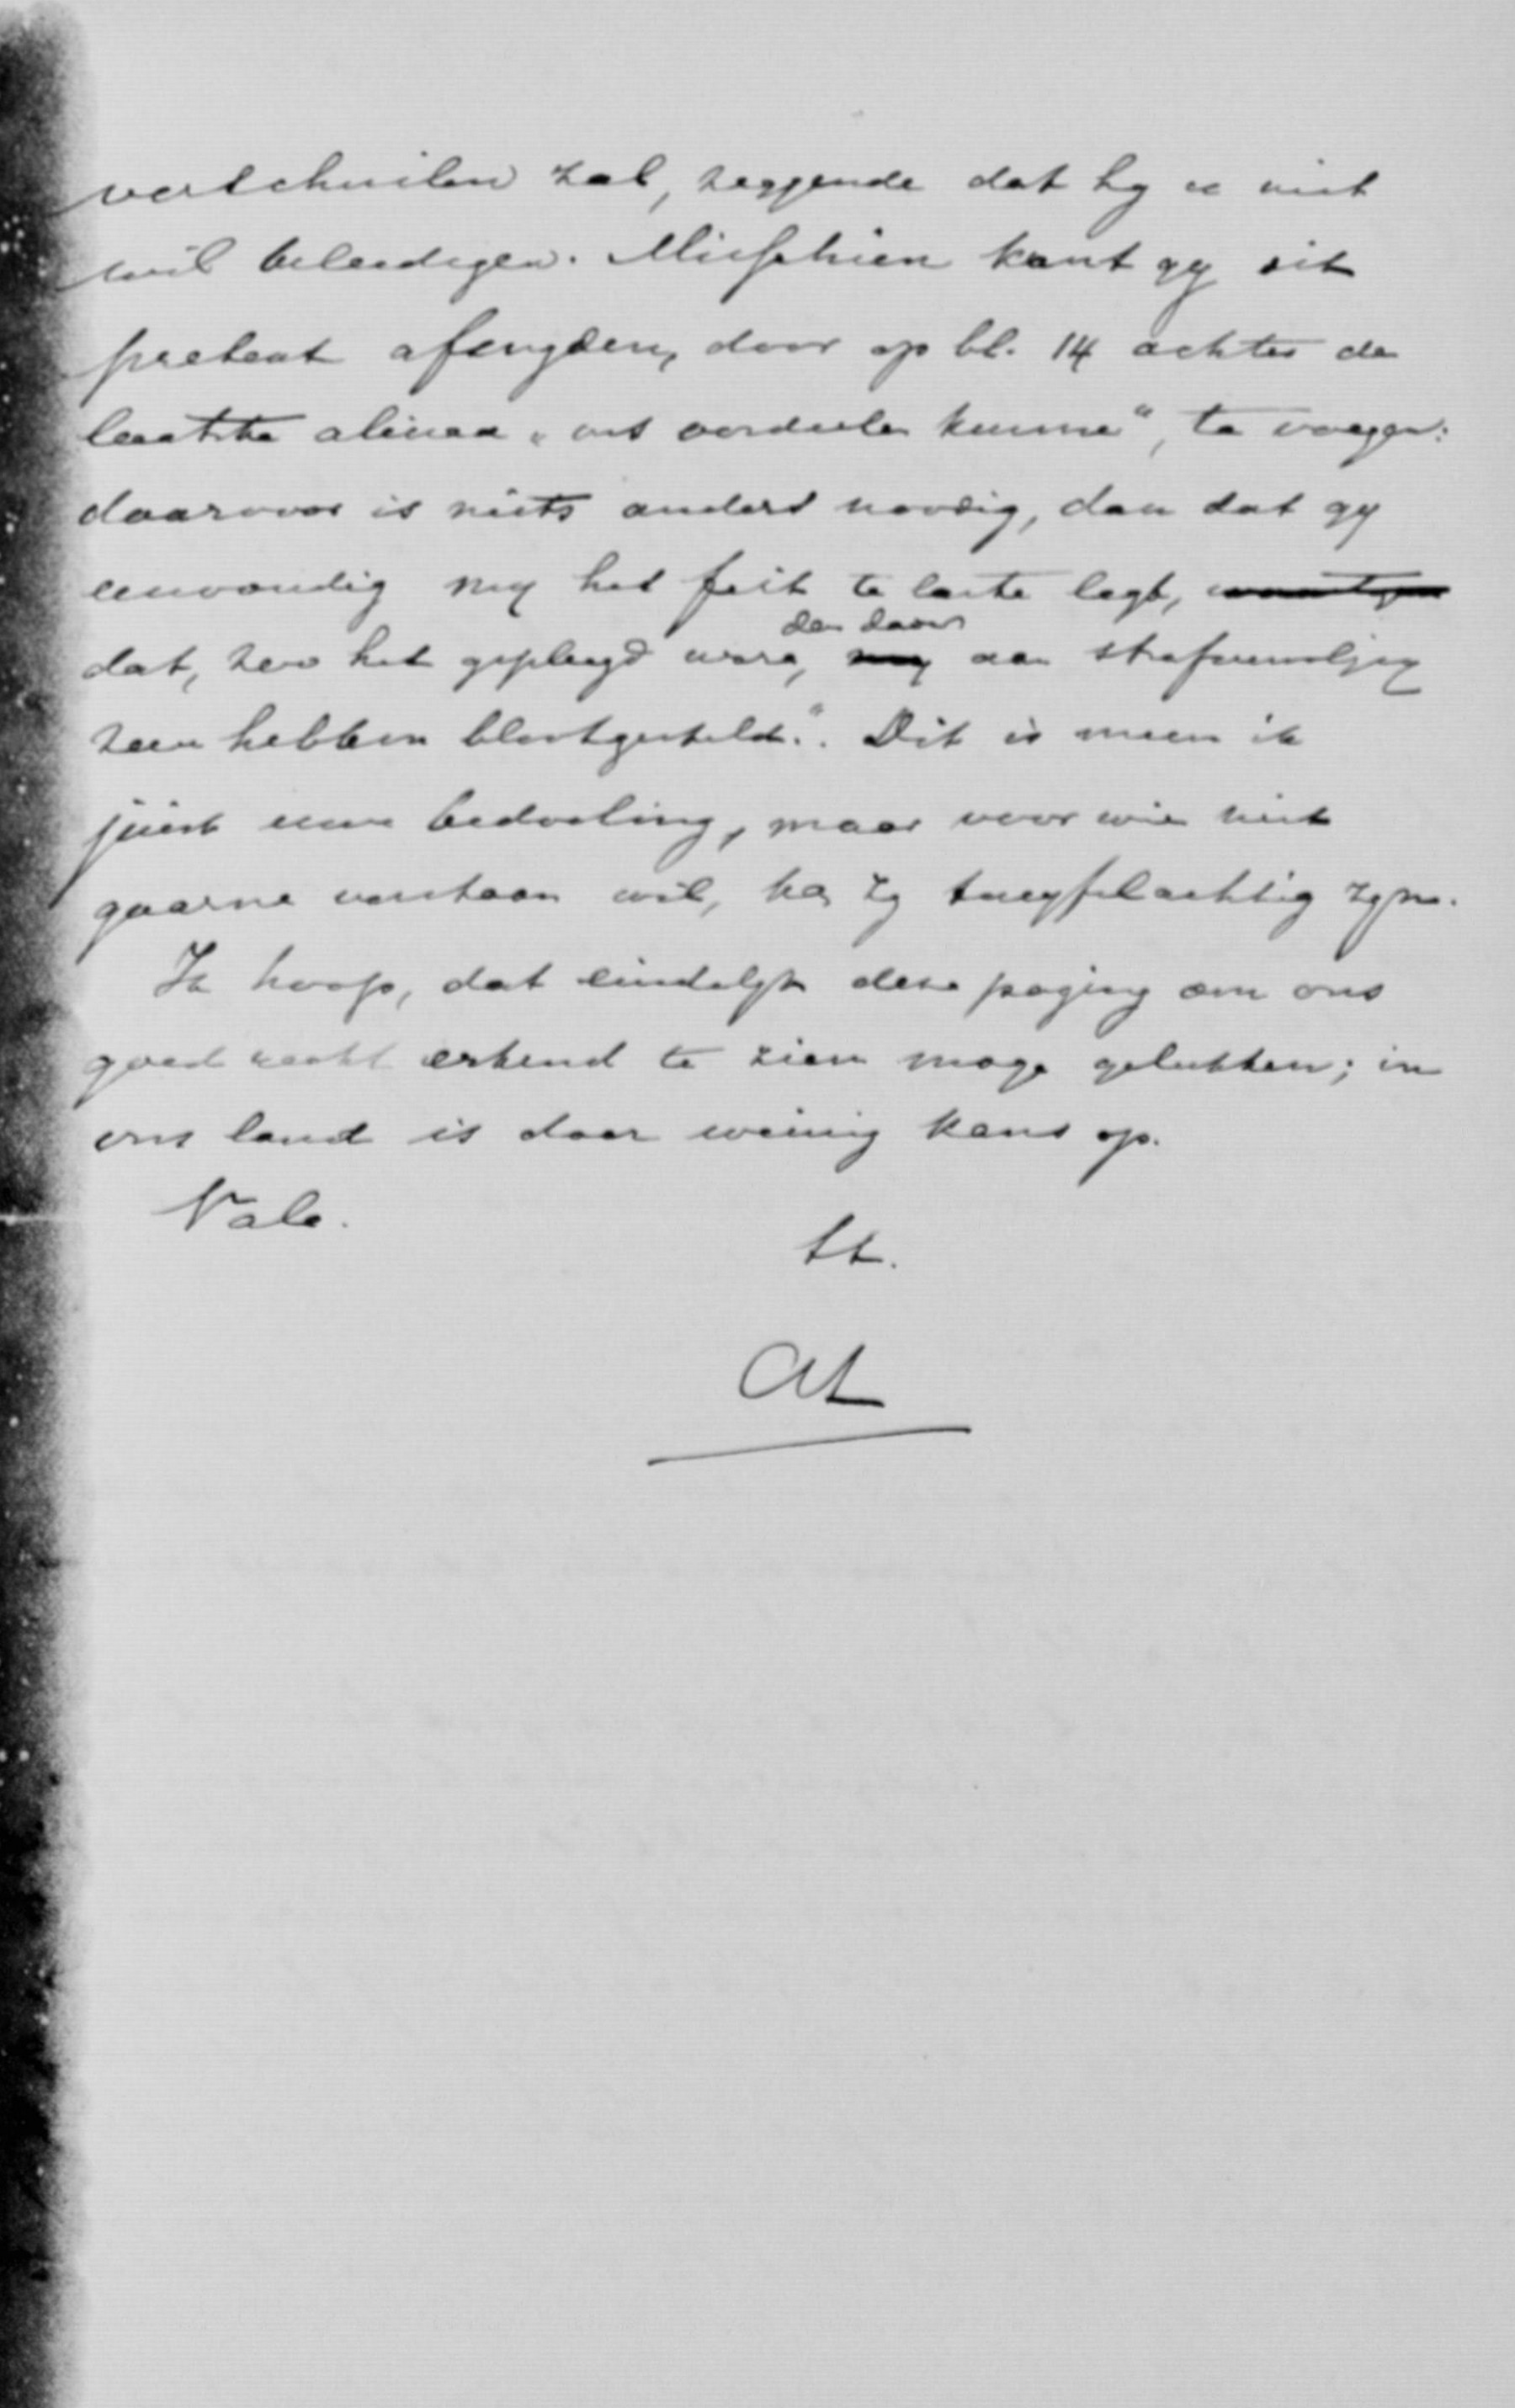 verschuilen zal, zeggende dat hy u niet
wil beleedigen. Misschien kunt gy dit
pretext afsnyden, door op bl. 14 achter de
laatste alinea „ons oordeelen kunne", te voegen:
daarvoor is niets anders noodig, dan dat gy
eenvoudig my het feit te laste legt,
dat, zoo het gepleegd ware, den dader
my aan strafvervolging
zou hebben blootgesteld.". Dit is meen ik
juist uwe bedoeling, maar voor wie niet
gaarne verstaan wil, ka zy twyfelachtig zyn.
Ik hoop, dat eindelyk deze poging om ons
goed recht erkend te zien moge gelukken; in
ons land is daar weinig kans op.
Vale.
tt.